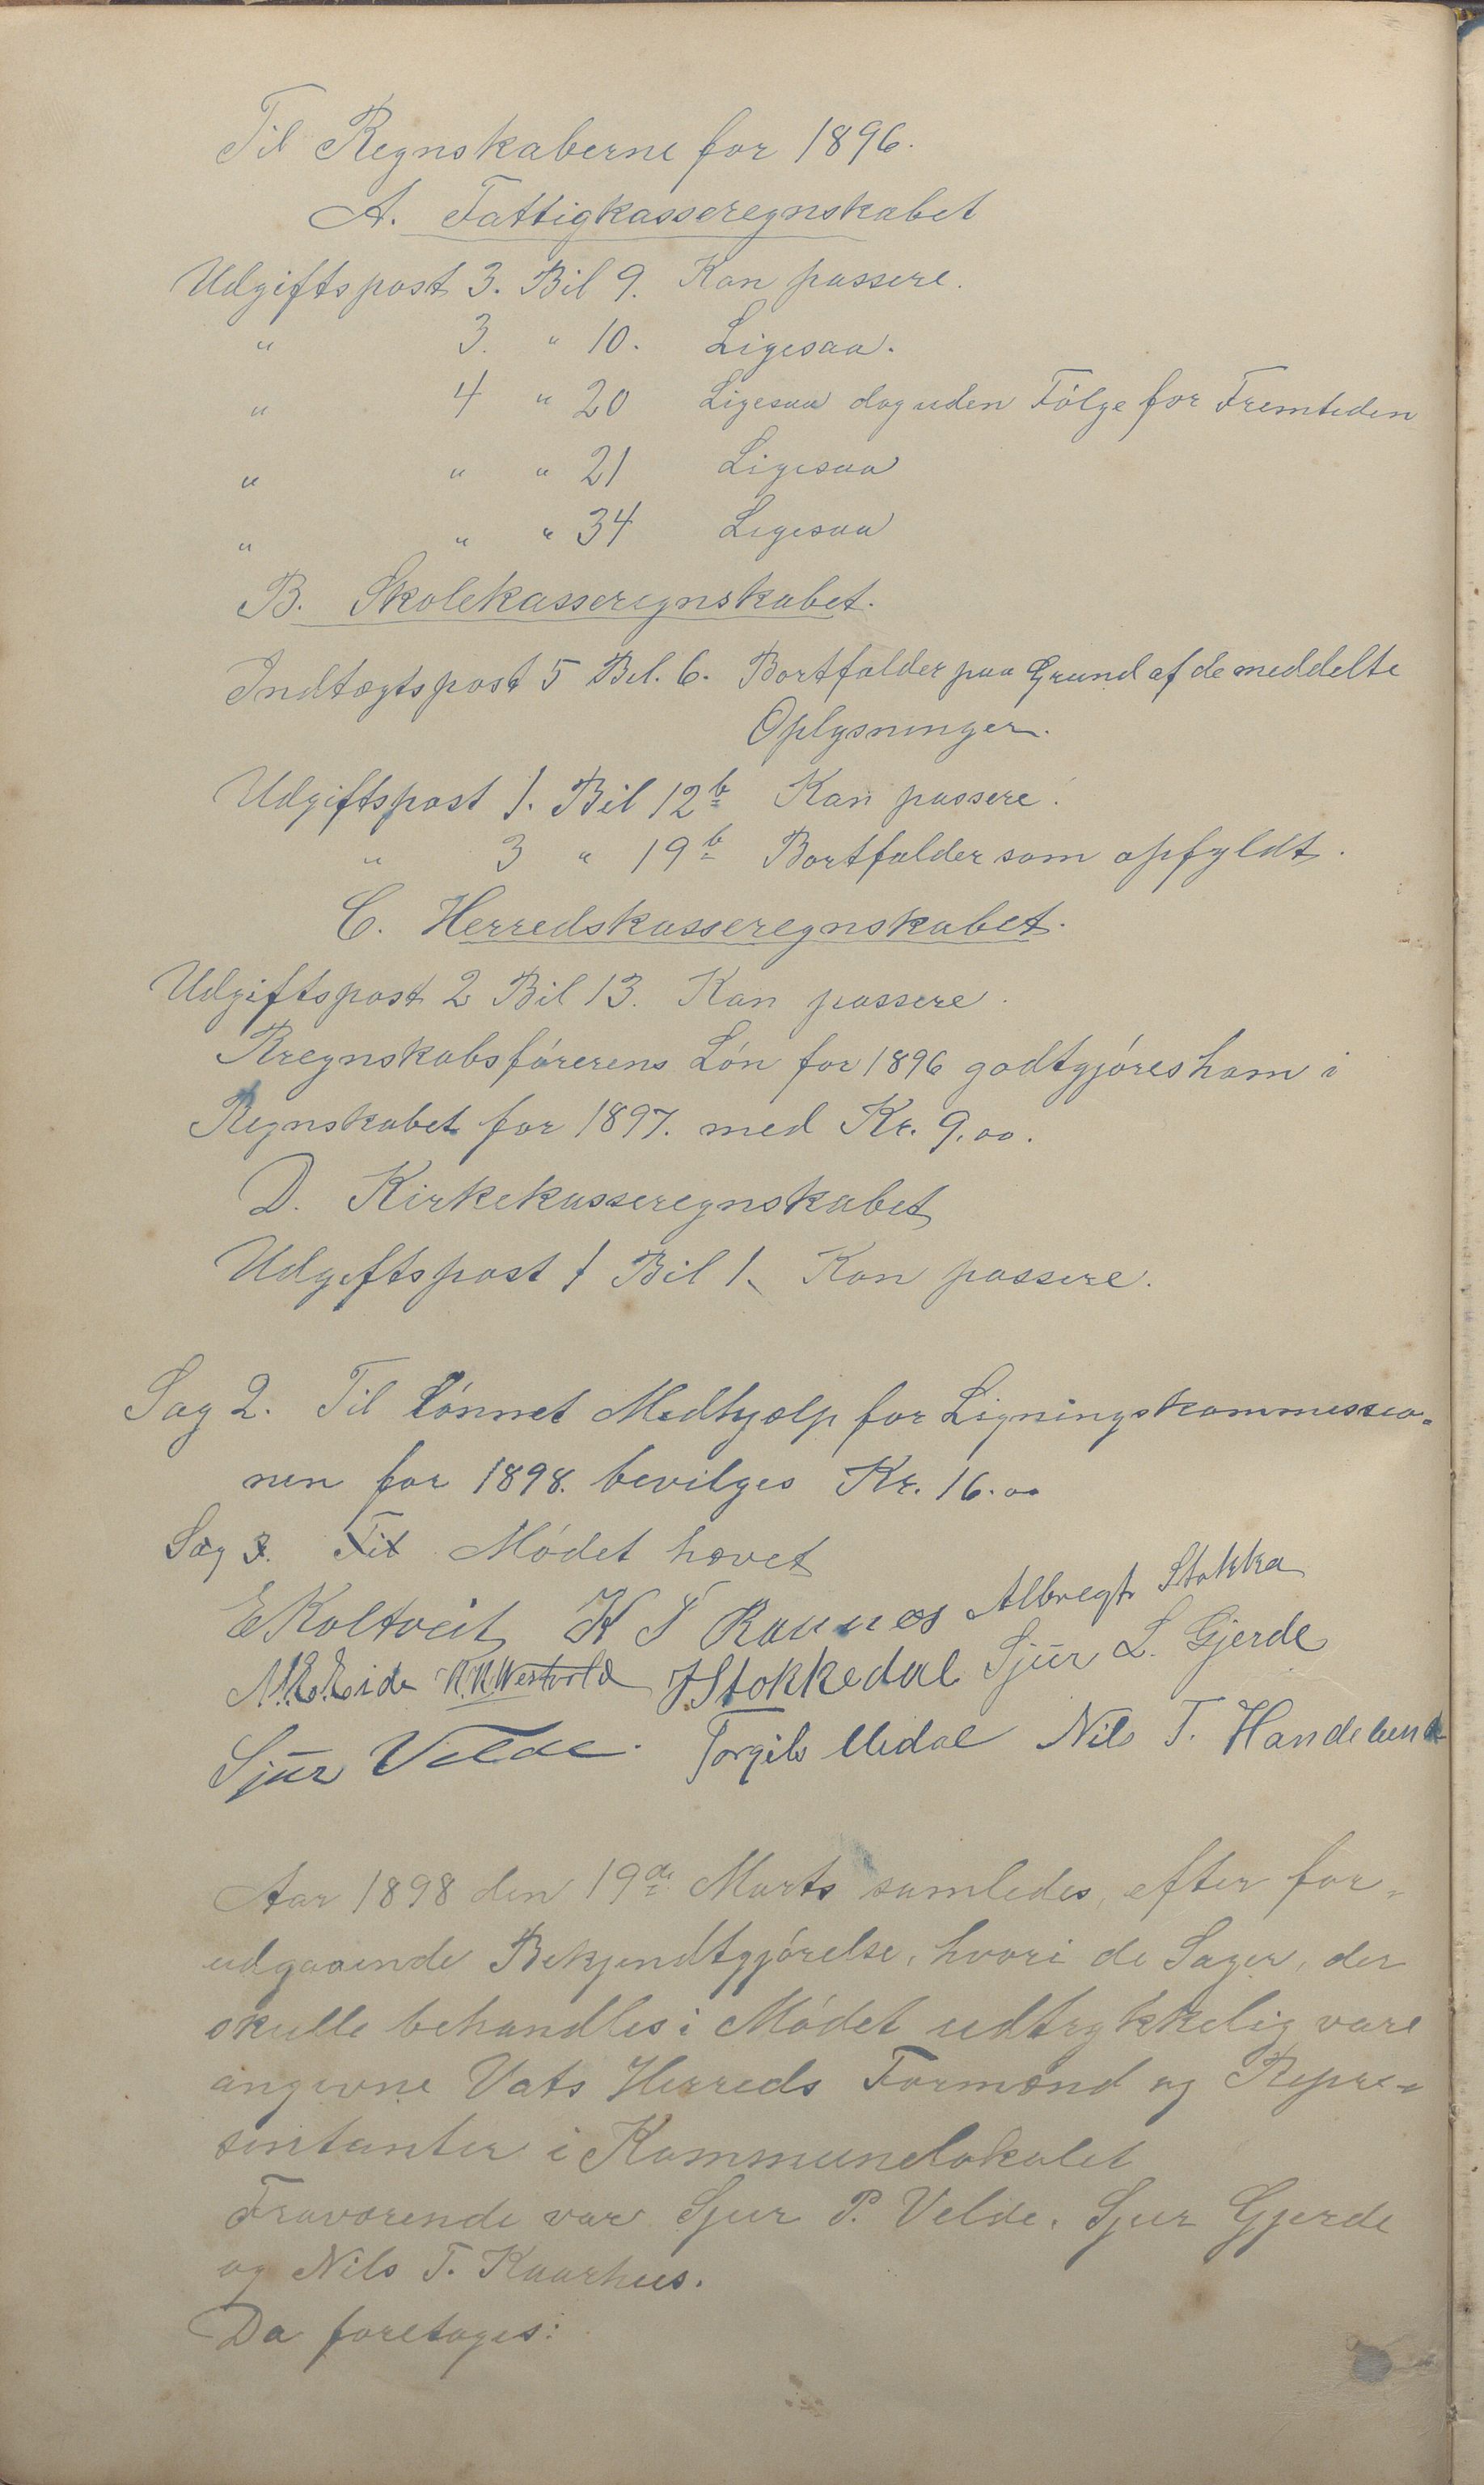 Til Regnskaberne for 1896.
A. Fattigkasseregnskabet
Udgiftspost 3. Bil 9. Kan passere.
" 3. " 10. Ligesaa.
" 4 " 20 Ligesaa dog uden Følge for Fremtiden
" " " 21 Ligesaa
" " " 34 Ligesaa
B. Skolekasseregnskabet.
Indtægtspost 5 Bil. 6. Bortfalder paa Grund af de meddelte
Oplysninger.
Udgiftspost 1. Bil 12b Kan passere.
" 3 " 19b Bortfalder som opfyldt.
C. Herredskasseregnskabet.
Udgiftspost 2 Bil 13. Kan passere.
Regnskabsførerens Løn for 1896 godtgjøres ham i
Regnskabet for 1897. med Kr. 9.00.
D. Kirkekasseregnskabet
Udgiftspost 1 Bil 1. Kan passere.
Sag 2. Til Lønnet Medhjælp for Ligningskommissio-
nen for 1898. bevilges Kr. 16.00
Sag 3. Til Mødet hævet
E Koltveit K T Raunes Albregt Stokka
K. K. Westvold J Stokkedal Sjur L. Gjerde
Sjur Velde. Torgils Midal Nils T. Handeland
Aar 1898 den 19de Marts samledes, efter for-
udgaaende Bekjendtgjørelse, hvori de Sager, der
skulle behandles i Mødet udtrykkelig vare
angivne Vats Herreds Formænd og Repre-
sentanter i Kommunelokalet
Fraværende var Sjur P. Velde, Sjur Gjerde
og Nils T. Kaarhus.
Da foretoges: